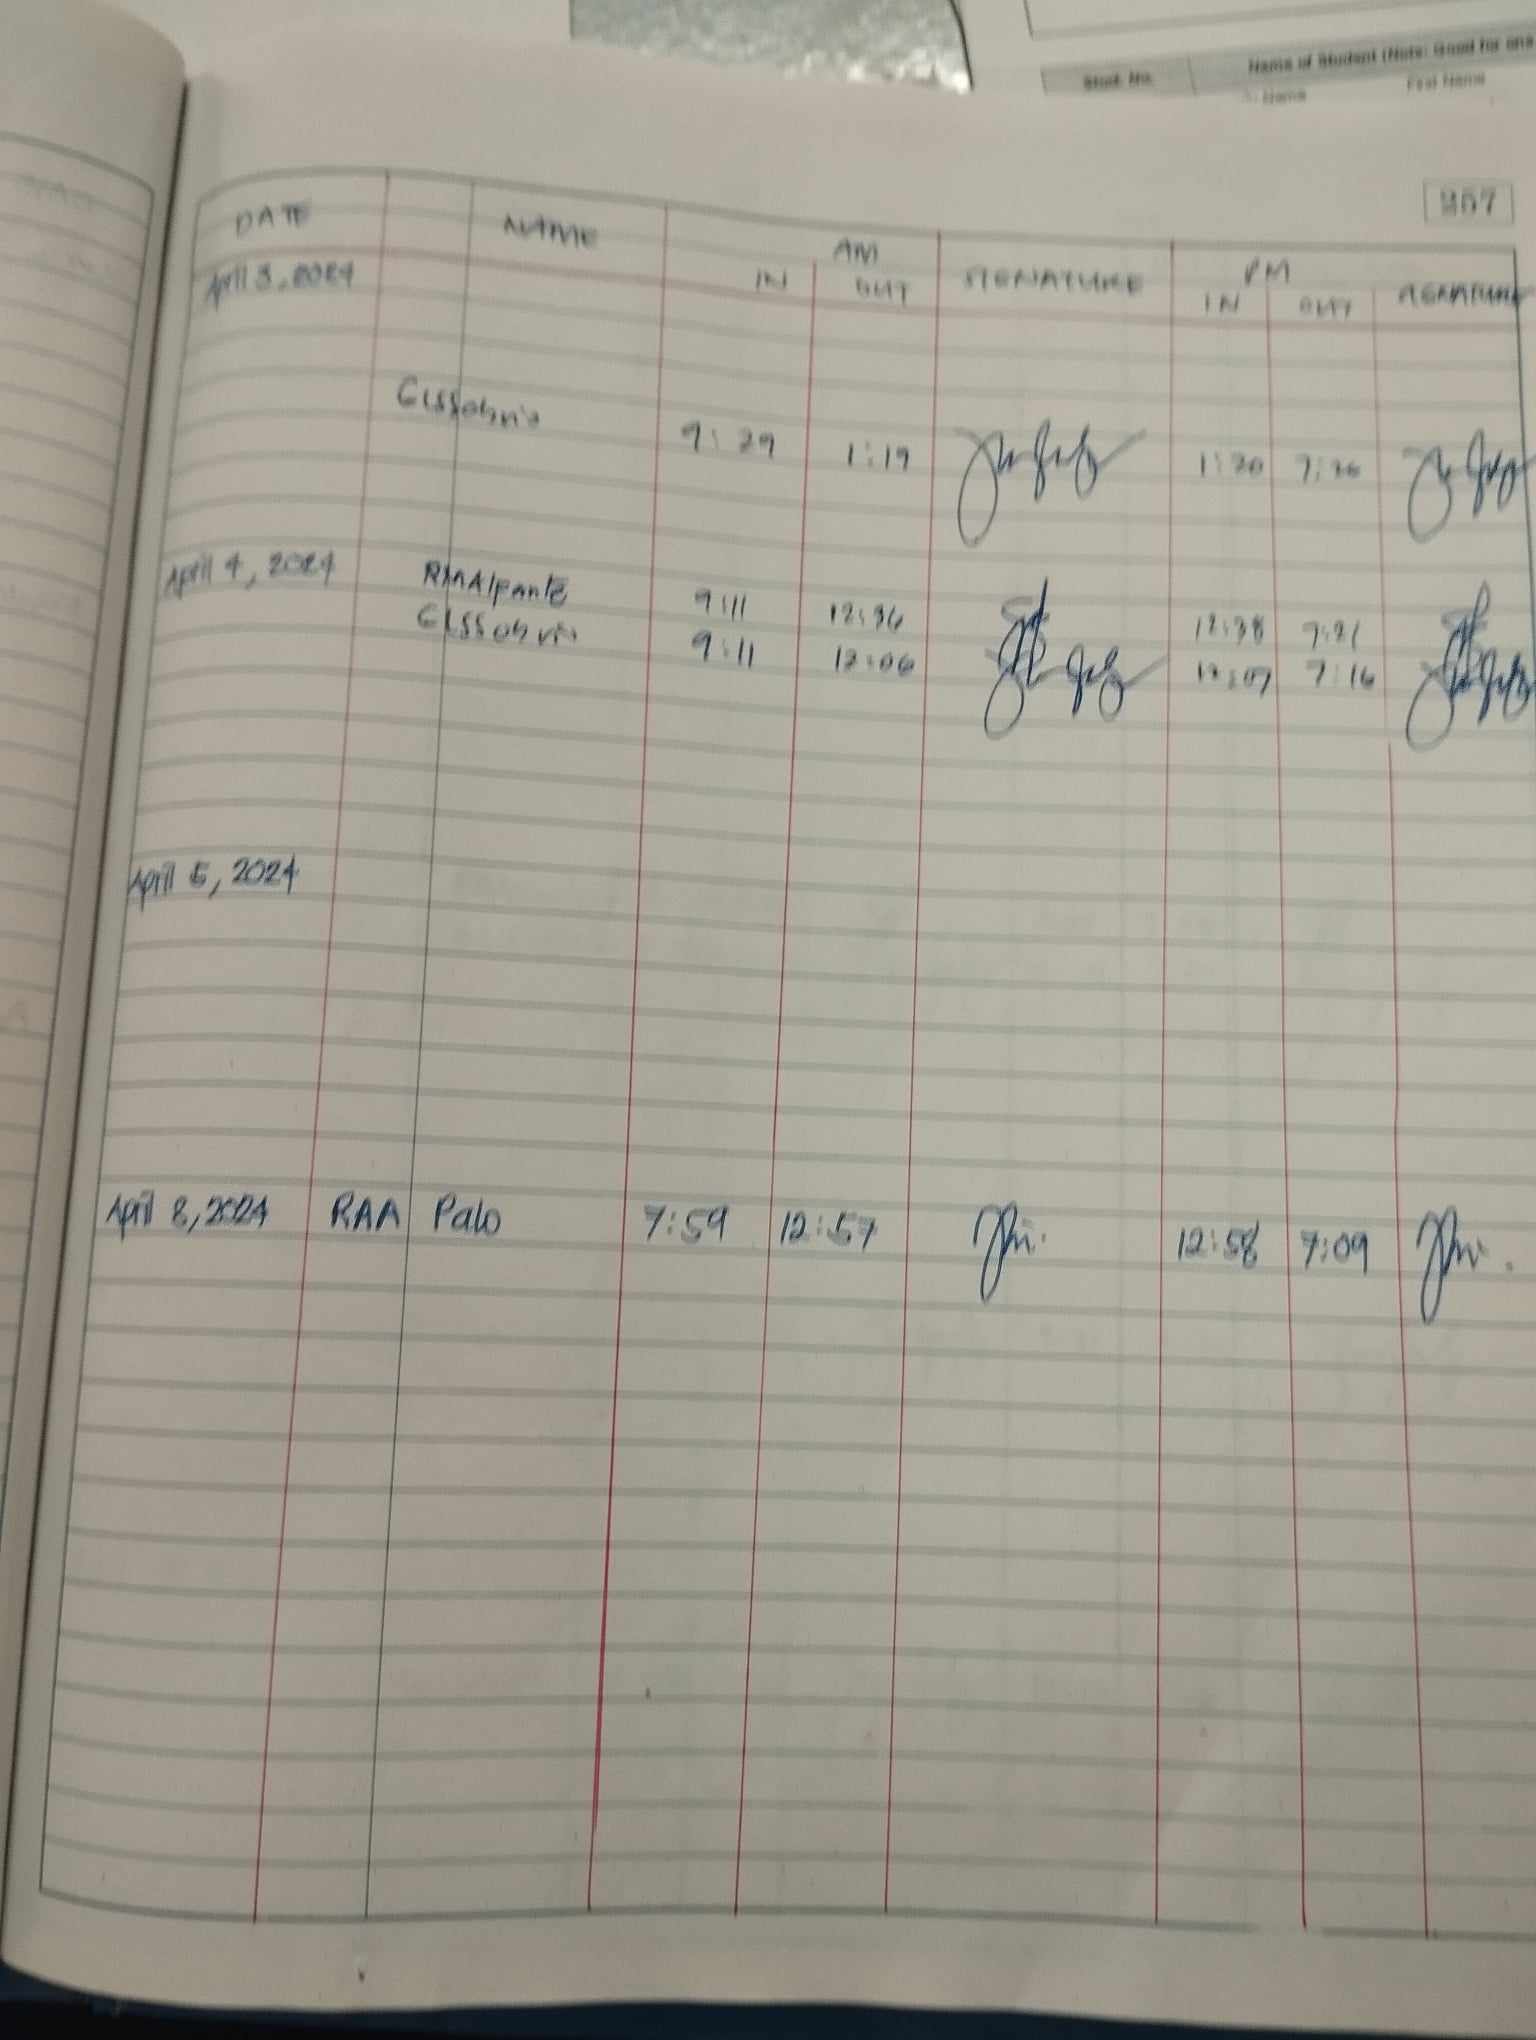 Name of Student (Note: Good for one
Stud. No.
Name First Name
257
DATE NAME AM SIGNATURE PM SIGNATURE
IN OUT IN OUT
April 3, 2024
9:29 1:19 1:20
April 4, 2024 9:11 12:36 12:38 7:21
9:11 12:06 12:07 7:16
April 5, 2024
April 8, 2024 RAA Palo 7:59 12:57 12:58 7:09